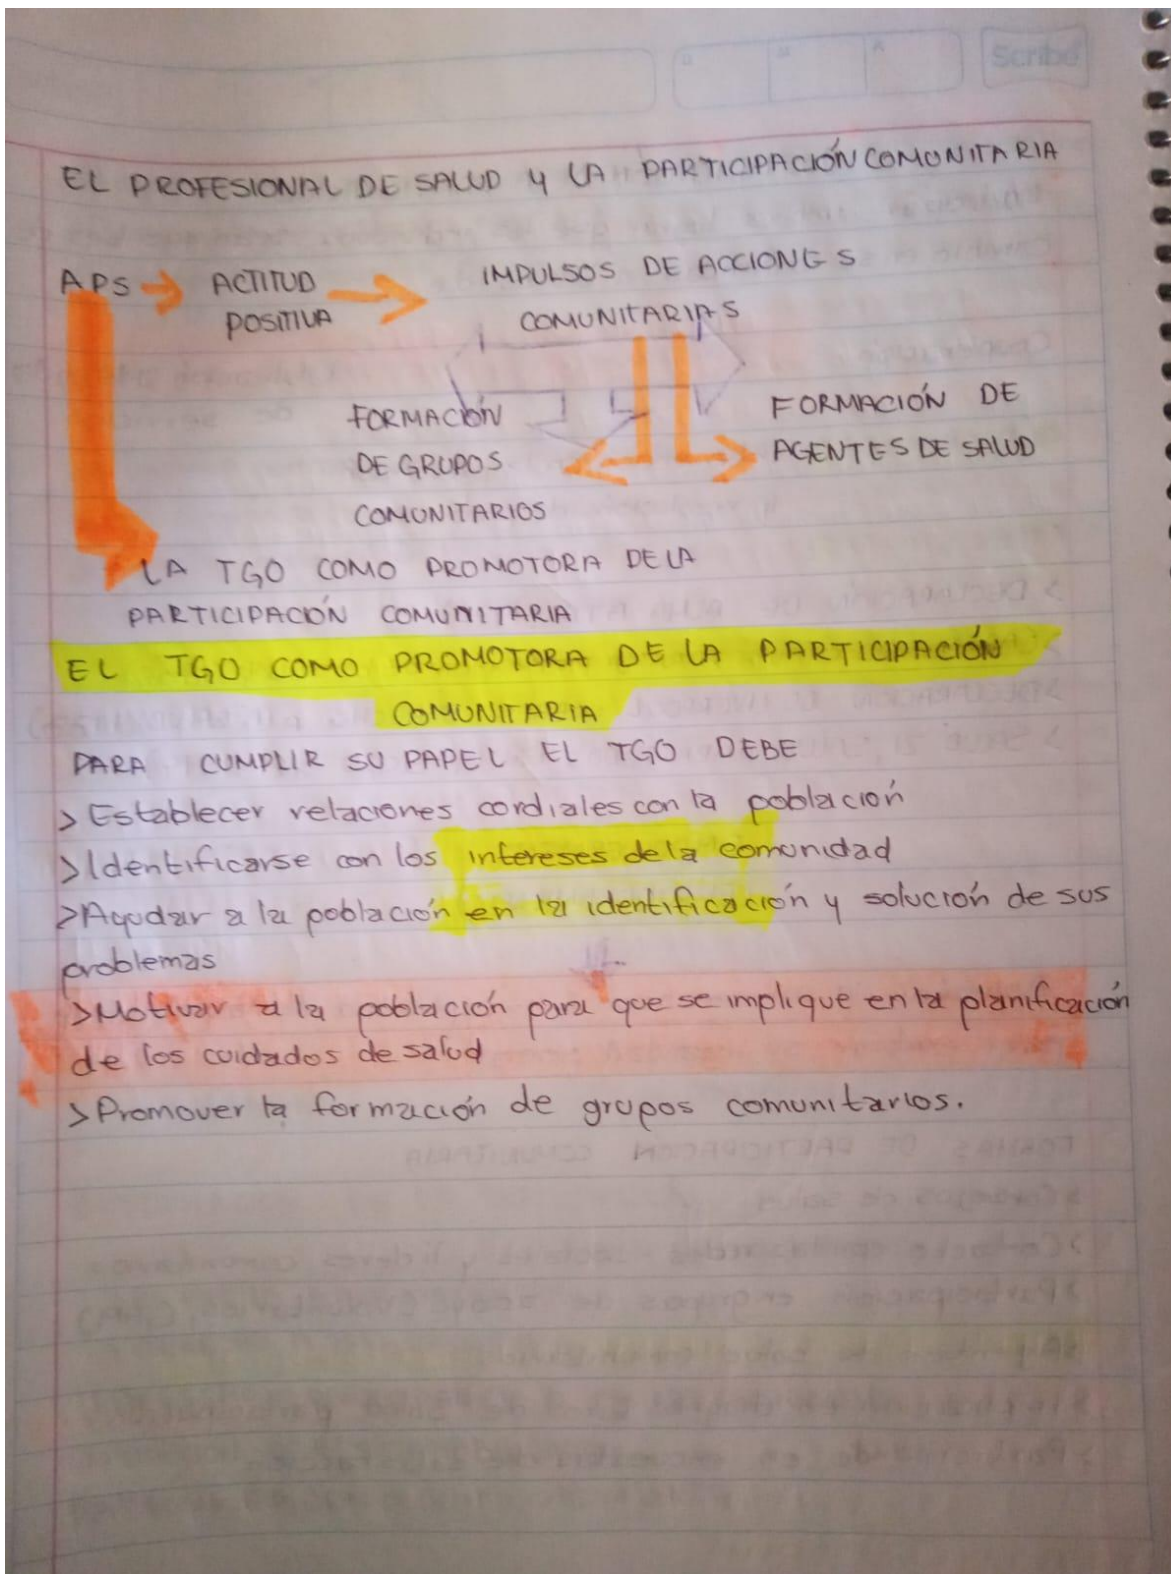 Scribe
EL PROFESIONAL DE SALUD Y LA PARTICIPACIÓN COMUNITARIA
APS → ACTITUD → IMPULSOS DE ACCIONES
POSITIVA COMUNITARIAS
FORMACIÓN FORMACIÓN DE
DE GRUPOS AGENTES DE SALUD
COMUNITARIOS
LA TGO COMO PROMOTORA DE LA
PARTICIPACIÓN COMUNITARIA
EL TGO COMO PROMOTORA DE LA PARTICIPACIÓN
COMUNITARIA
PARA CUMPLIR SU PAPEL EL TGO DEBE
> Establecer relaciones cordiales con la población
> Identificarse con los intereses de la comunidad
> Ayudar a la población en la identificación y solución de sus
problemas
> Motivar a la población para que se implique en la planificación
de los cuidados de salud
> Promover la formación de grupos comunitarios.